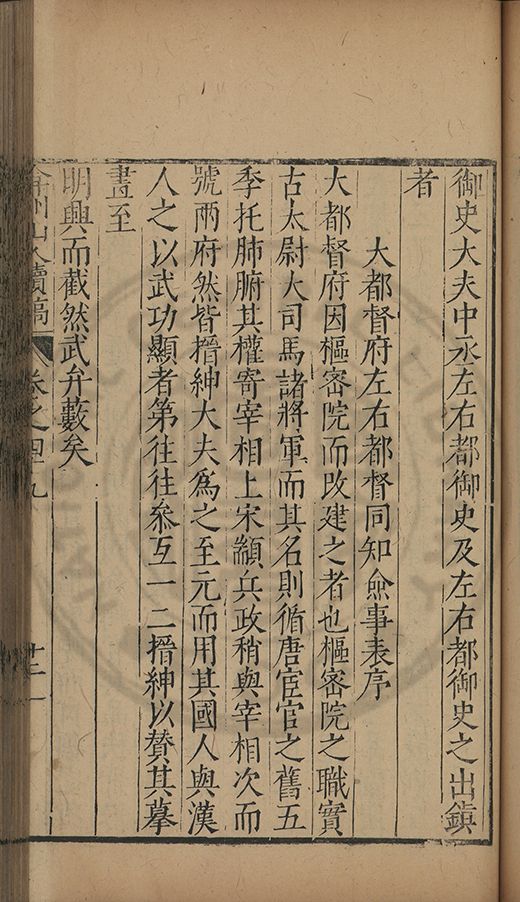 御史大夫中丞左右都御史及左右都御史之出鎮
者
大都督府左右都督同知僉事表序
大都督府因樞密院而改建之者也樞密院之職實
古太尉大司馬諸將軍而其名則循唐宦官之舊五
季托肺腑其權寄宰相上宋顓兵政稍與宰相次而
號兩府然皆搢紳大夫為之至元而用其國人與漢
人之以武功顯者第往往叅互一二搢紳以賛其摹
畫至
明興而截然武弁藪矣
弇州山人續稿 卷之四九